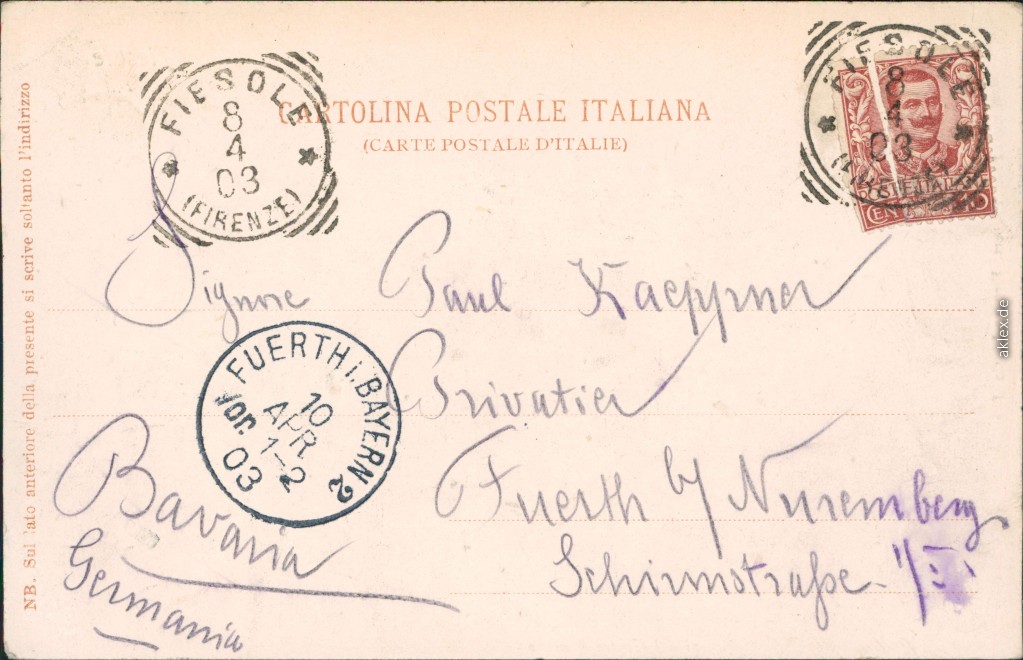 CARTOLINA POSTALE ITALIANA
(CARTE POSTALE D'ITALIE)
FIESOLE
8
4
03
(FIRENZE)
FIESOLE
8
4
03
POSTE ITALIANE
Signore Paul Kaeppner
Privatier
Fuerth b/ Nuremberg
Schirmstraße
Bavaria
Germania
FUERTH i. BAYERN 2
10
APR
1-2
Vor. 03
NB. Sul lato anteriore della presente si scrive soltanto l'indirizzo
aklex.de